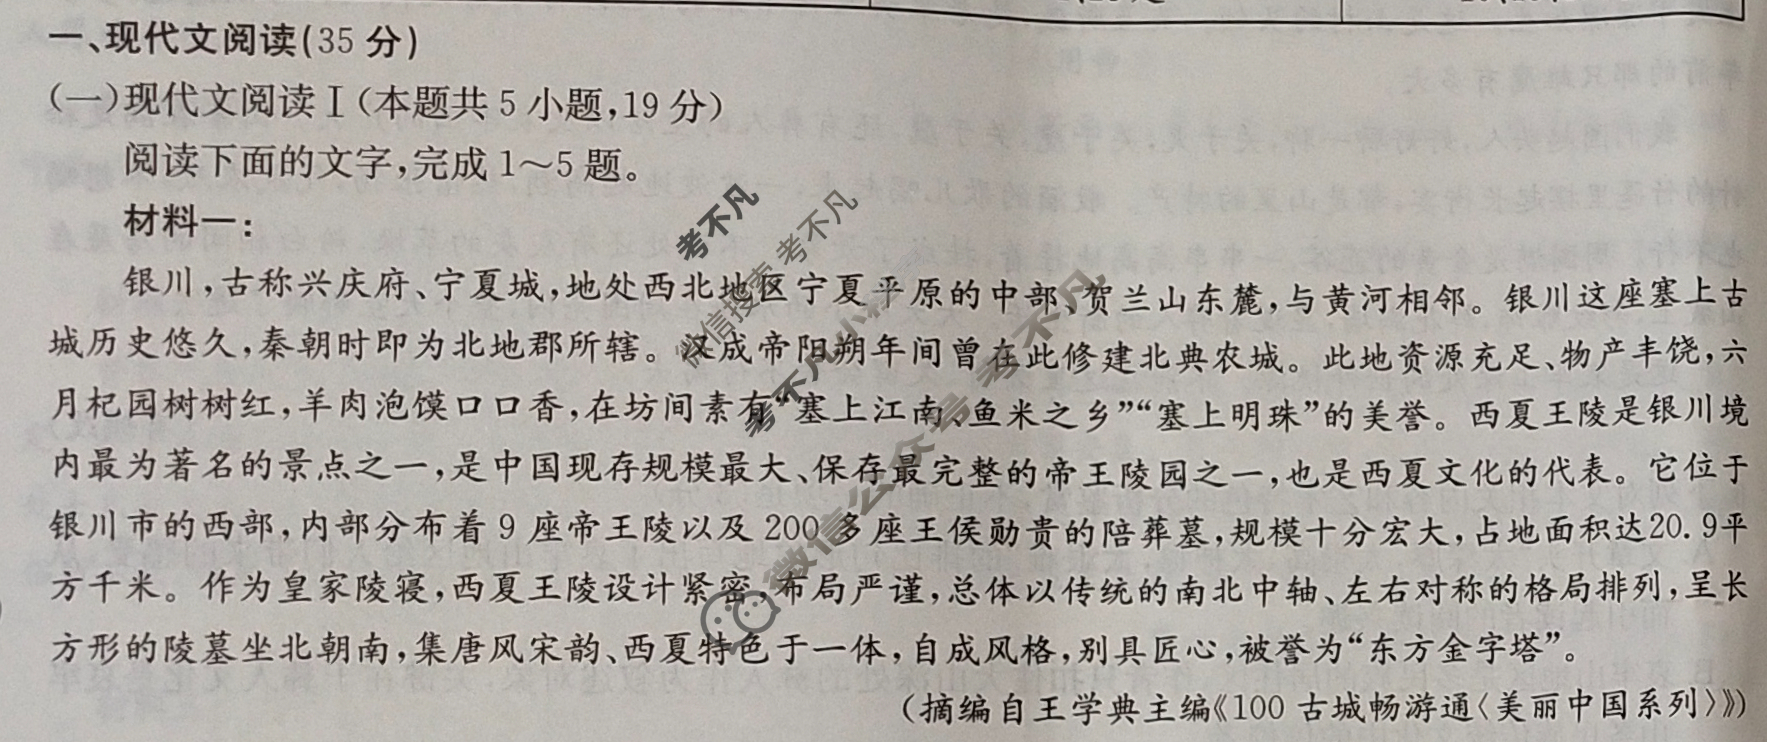 一、现代文阅读(35分)
(一)现代文阅读Ⅰ(本题共5小题,19分)
阅读下面的文字,完成1～5题。
材料一:
银川,古称兴庆府、宁夏城,地处西北地区宁夏平原的中部、贺兰山东麓,与黄河相邻。银川这座塞上古
城历史悠久,秦朝时即为北地郡所辖。汉成帝阳朔年间曾在此修建北典农城。此地资源充足、物产丰饶,六
月杞园树树红,羊肉泡馍口口香,在坊间素有“塞上江南、鱼米之乡”“塞上明珠”的美誉。西夏王陵是银川境
内最为著名的景点之一,是中国现存规模最大、保存最完整的帝王陵园之一,也是西夏文化的代表。它位于
银川市的西部,内部分布着9座帝王陵以及200多座王侯勋贵的陪葬墓,规模十分宏大,占地面积达20.9平
方千米。作为皇家陵寝,西夏王陵设计紧密,布局严谨,总体以传统的南北中轴、左右对称的格局排列,呈长
方形的陵墓坐北朝南,集唐风宋韵、西夏特色于一体,自成风格,别具匠心,被誉为“东方金字塔”。
(摘编自王学典主编《100古城畅游通〈美丽中国系列〉》)
考不凡
微信搜索 考不凡
考不凡
微信公众号 考不凡